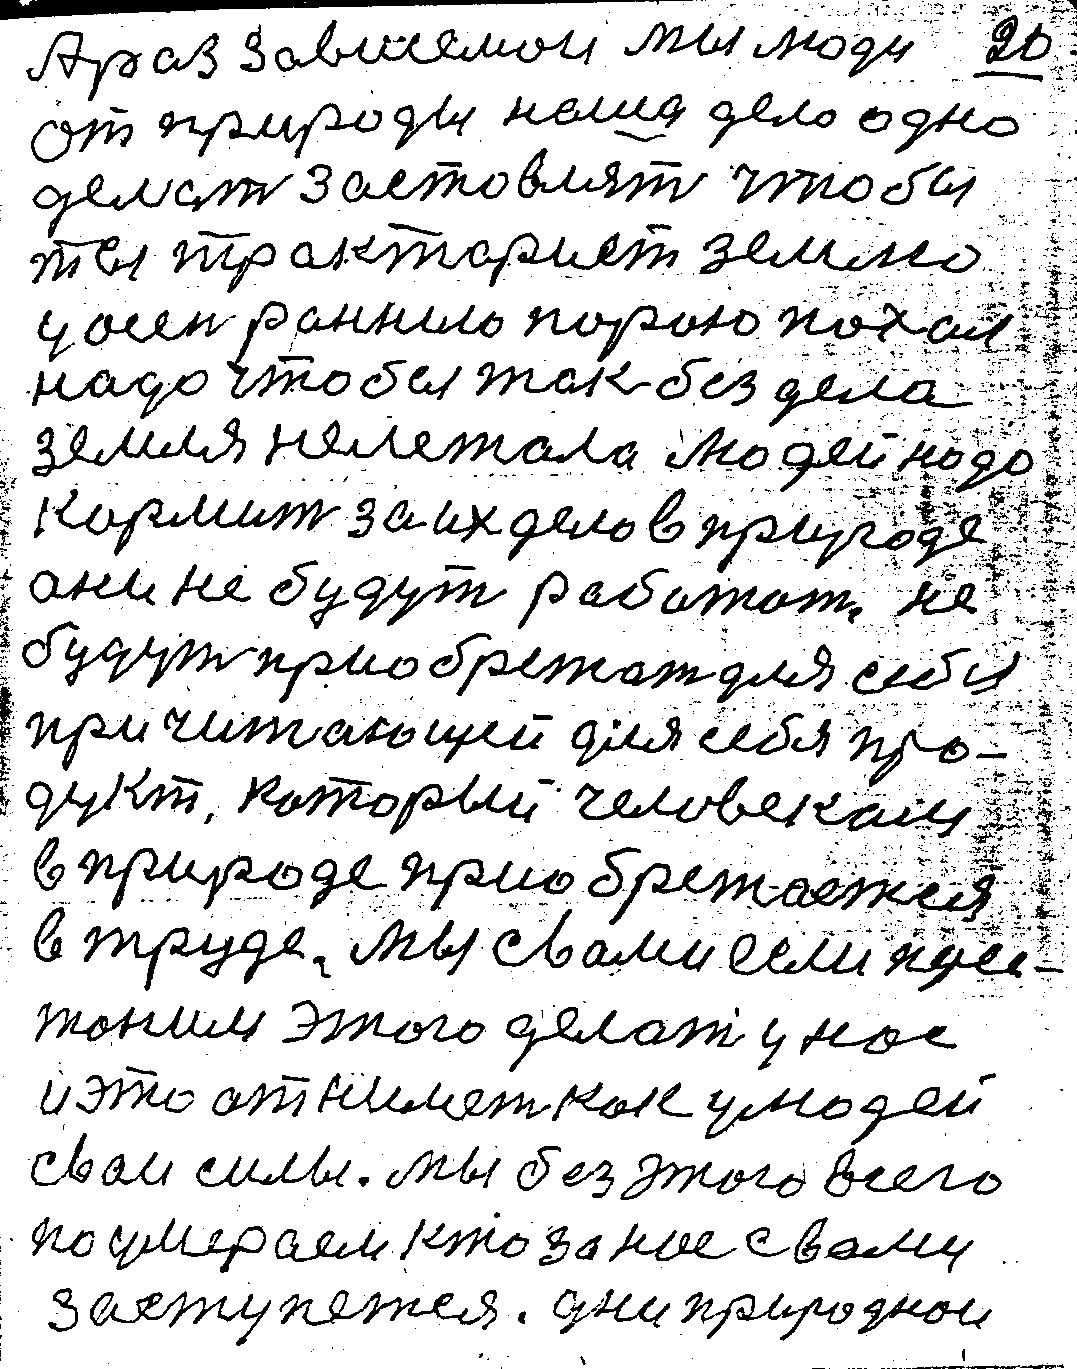 А раз зависемои мы люди 20
от природы наша дело одно
делат заставлят чтобы
ты тракторист землю
у осен раннию порою похал
надо чтобы так без дела
земля нележала людей надо
кормит за их дело в природе
они не будут работат. не
будут приобретат для себя
причитающей для себя про-
дукт, который человекам
в природе приобретается
в труде. мы свами если пере-
таним этого делат у нас
и это отнимет как у людей
сваи силы. мы без этого всего
поумераем кто за нас свами
заступется. дни природнои